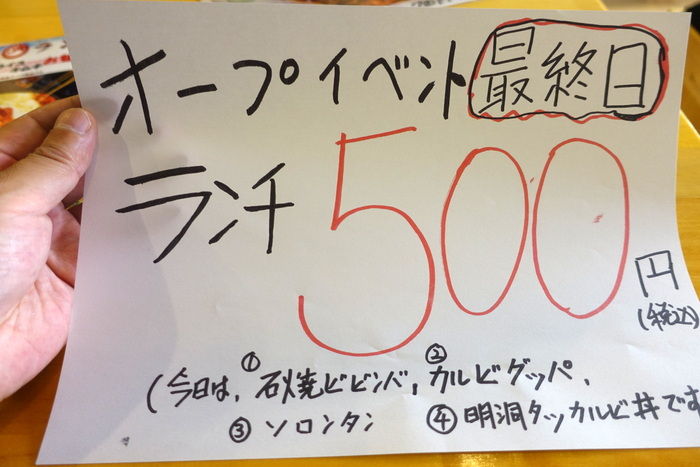 オープイベント 最終日
ランチ 500円
(税込)
(今日は、①石焼ビビンバ、②カルビグッパ、
③ソロンタン ④明洞タッカルビ丼です